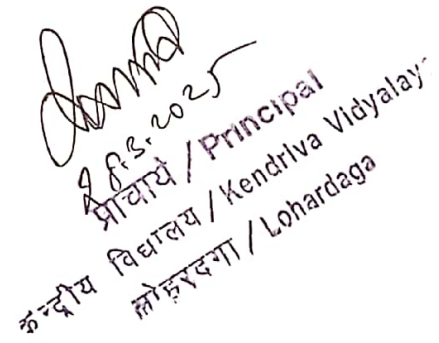 28.3.2025
प्राचार्य / Principal
केन्द्रीय विद्यालय / Kendriya Vidyalay
लोहरदगा / Lohardaga